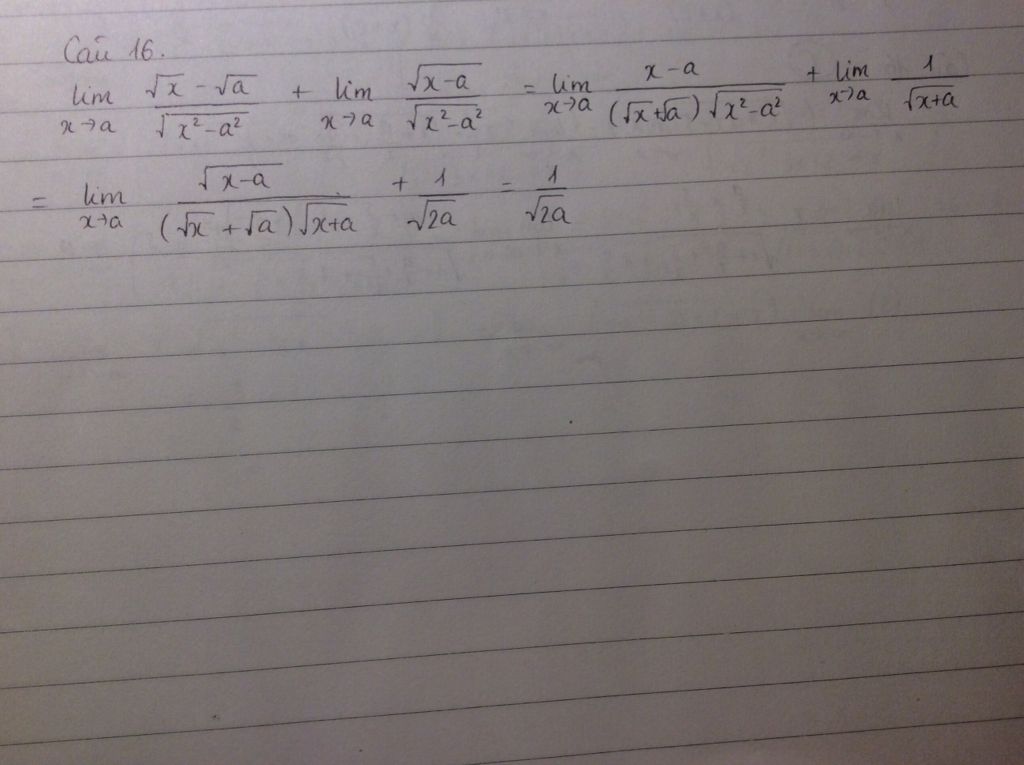 Câu 16.
lim x→a (√x - √a)/√(x²-a²) + lim x→a √(x-a)/√(x²-a²) = lim x→a (x-a)/((√x+√a)√(x²-a²)) + lim x→a 1/√(x+a)
= lim x→a √(x-a)/((√x+√a)√(x+a)) + 1/√(2a) = 1/√(2a)